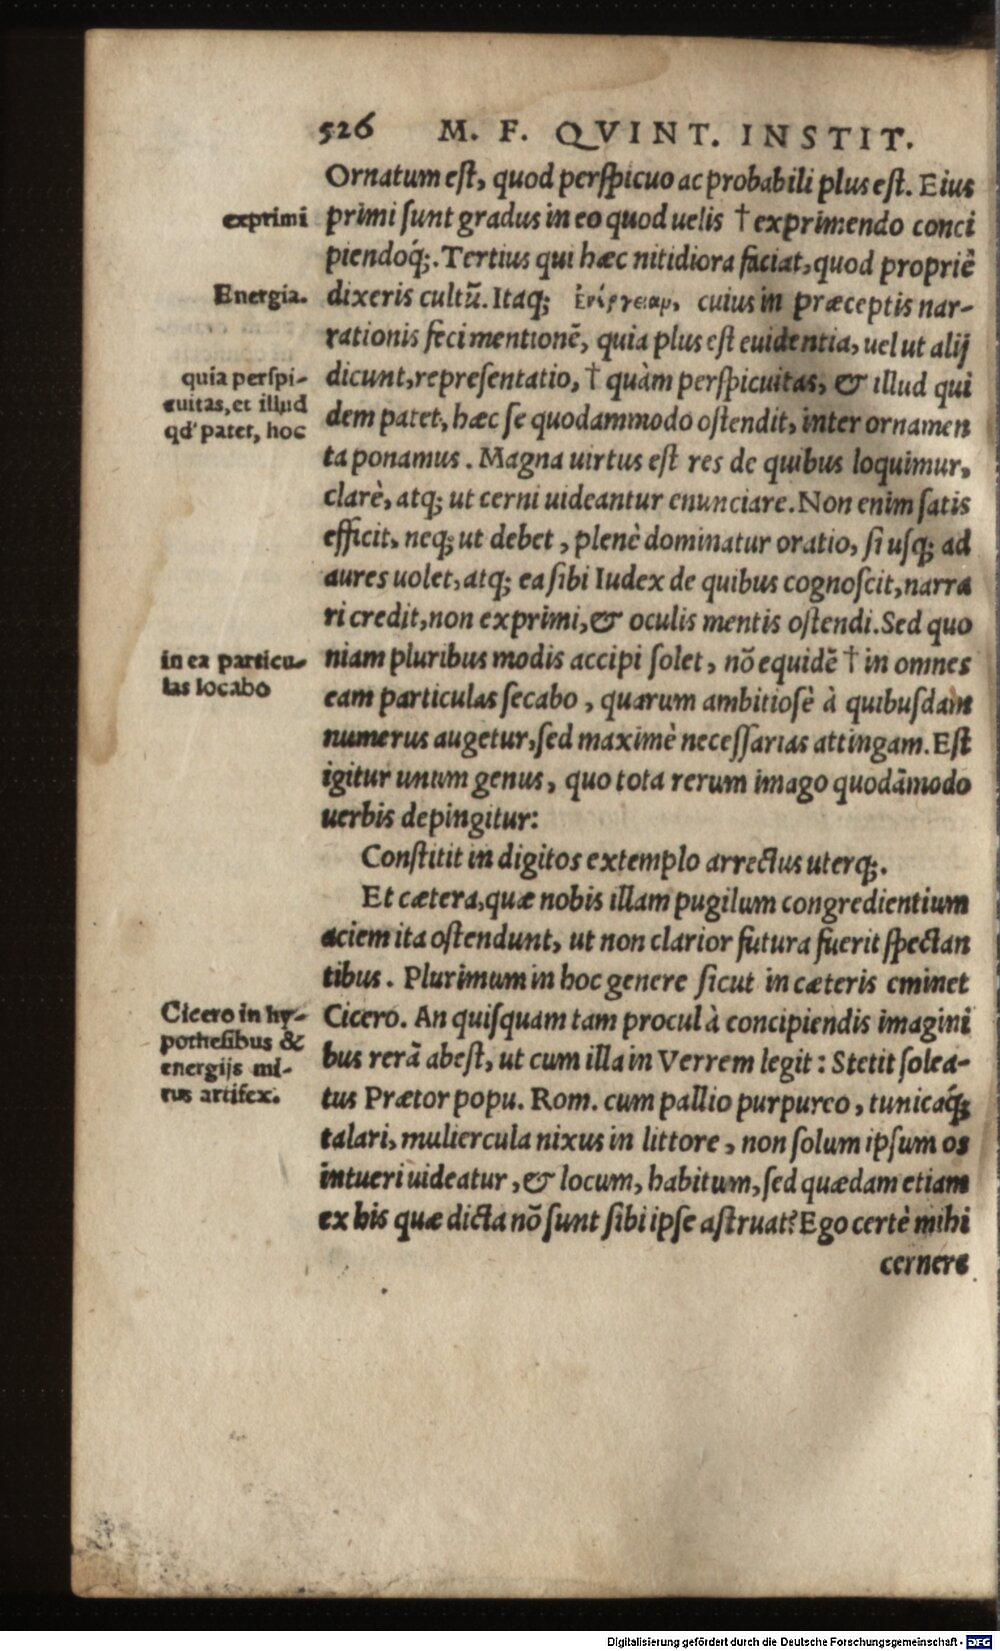 526 M. F. QVINT. INSTIT.
Ornatum est, quod perspicuo ac probabili plus est. Eius
exprimi
primi sunt gradus in eo quod uelis † exprimendo conci
piendoq́;. Tertius qui hæc nitidiora faciat, quod propriè
Energia.
dixeris cultū. Itaq; ἐνέργειαν, cuius in præceptis nar-
rationis feci mentionē, quia plus est euidentia, uel ut alij
quia perspi-
cuitas, et illud
qd' patet, hoc
dicunt, repræsentatio, † quàm perspicuitas, & illud qui
dem patet, hæc se quodammodo ostendit, inter ornamen
ta ponamus. Magna uirtus est res de quibus loquimur,
clarè, atq; ut cerni uideantur enunciare. Non enim satis
efficit, neq; ut debet, plenè dominatur oratio, si usq; ad
aures uolet, atq; ea sibi Iudex de quibus cognoscit, narra
ri credit, non exprimi, & oculis mentis ostendi. Sed quo
in ea particu-
las locabo
niam pluribus modis accipi solet, nō equidē † in omnes
eam particulas secabo, quarum ambitiosè à quibusdam
numerus augetur, sed maximè necessarias attingam. Est
igitur unum genus, quo tota rerum imago quodāmodo
uerbis depingitur:
Constitit in digitos extemplo arrectus uterq;.
Et cætera, quæ nobis illam pugilum congredientium
aciem ita ostendunt, ut non clarior futura fuerit spectan
tibus. Plurimum in hoc genere sicut in cæteris eminet
Cicero in hy-
pothesibus &
energijs mi-
rus artifex.
Cicero. An quisquam tam procul à concipiendis imagini
bus rerū abest, ut cum illa in Verrem legit: Stetit solea-
tus Prætor popu. Rom. cum pallio purpureo, tunicaq́;
talari, muliercula nixus in littore, non solum ipsum os
intueri uideatur, & locum, habitum, sed quædam etiam
ex his quæ dicta nō sunt sibi ipse astruat? Ego certè mihi
cernere
Digitalisierung gefördert durch die Deutsche Forschungsgemeinschaft - DFG